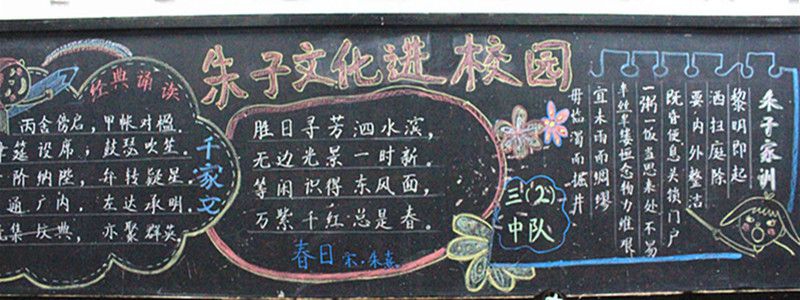 朱子文化进校园
经典诵读
丙舍傍启，甲帐对楹。
筵设席；鼓瑟吹笙。
阶纳陛，弁转疑星。
通广内，左达承明。
集坟典，亦聚群英。
千家文
胜日寻芳泗水滨，
无边光景一时新。
等闲识得东风面，
万紫千红总是春。
春日 宋·朱熹
三(2)
中队
朱子家训
黎明即起
洒扫庭除
要内外整洁
既昏便息关锁门户
一粥一饭当思来处不易
半丝半缕恒念物力维艰
宜未雨而绸缪
毋临渴而掘井